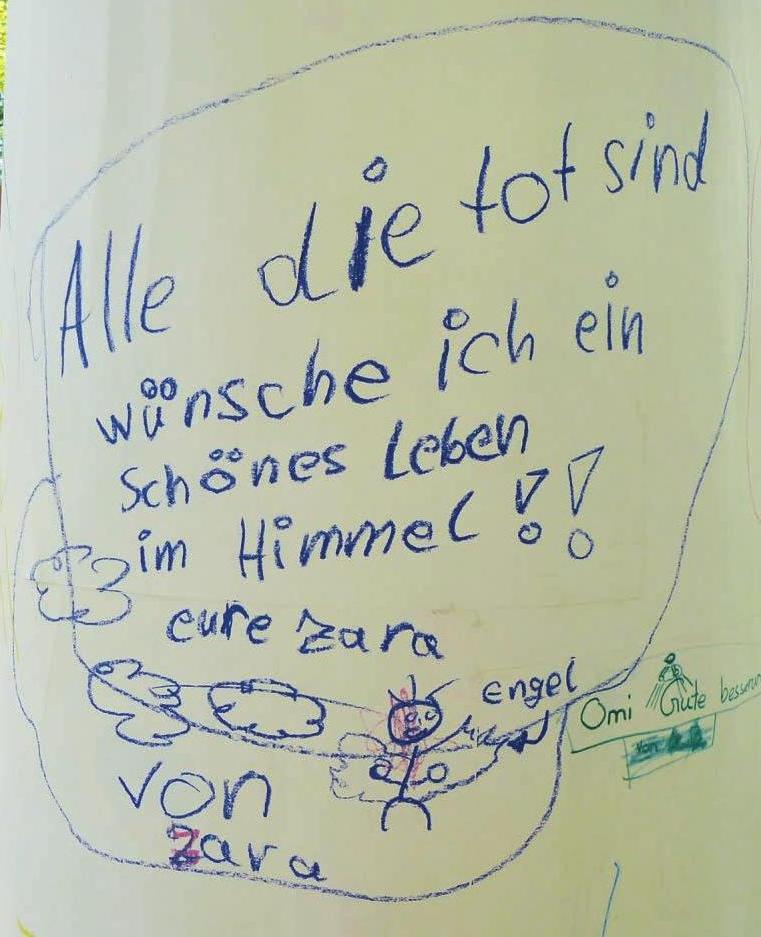 Alle die tot sind
wünsche ich ein
schönes Leben
im Himmel !!
eure zara
Engel
Omi Gute besserun
von
von
zara